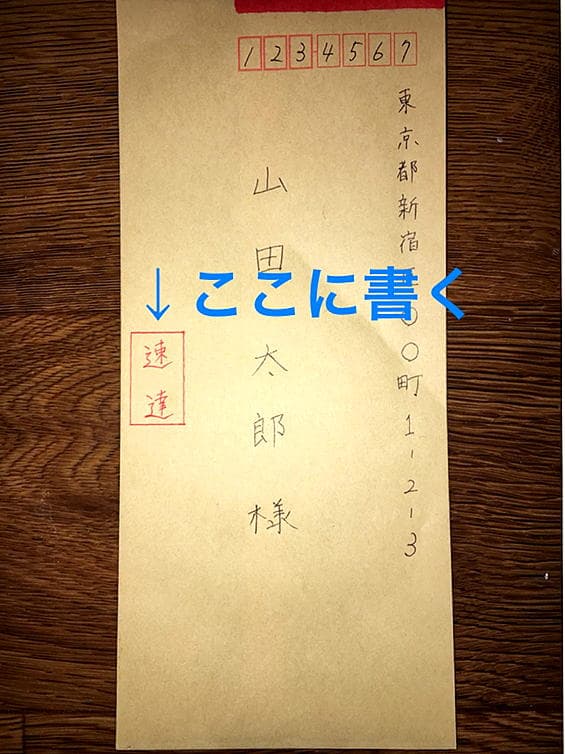 1234567
東京都新宿〇〇町1-2-3
山田太郎様
↓ここに書く
速達